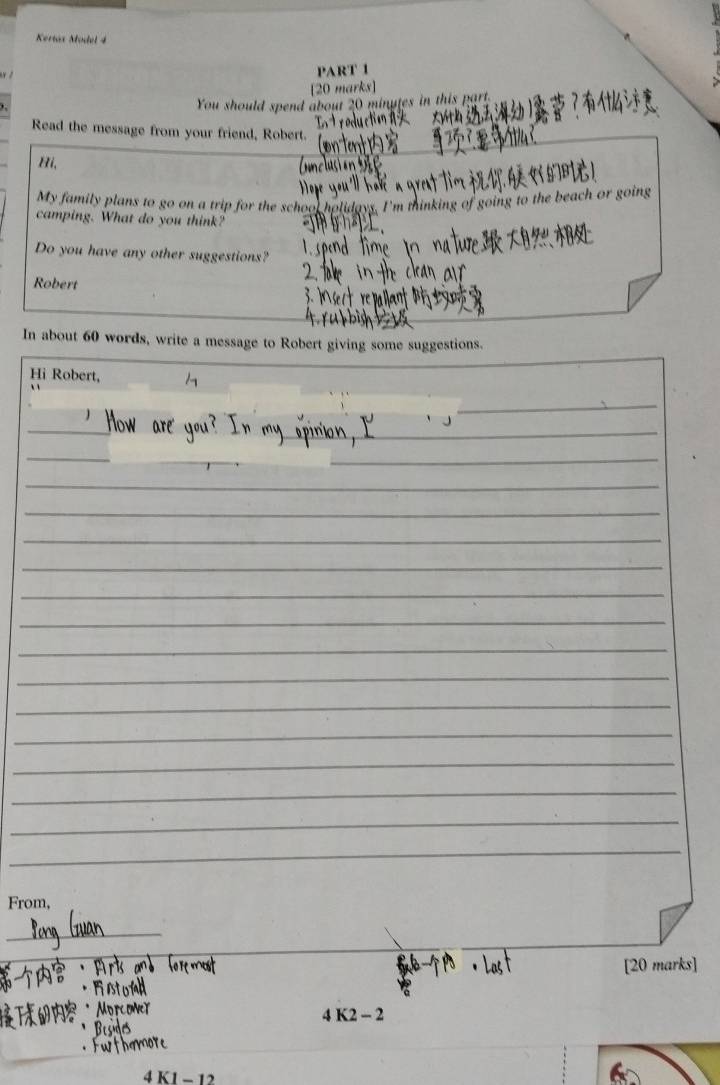 Kertas Model 4
PART 1
[20 marks]
You should spend about 20 minutes in this part.
Introduction
Content内容
Conclusion
Hope you'll have a great tim 祝你
Read the message from your friend, Robert.
Hi,
My family plans to go on a trip for the school holidays. I'm thinking of going to the beach or going
camping. What do you think?
Do you have any other suggestions?
Robert
1. spend time in nature 跟大自然相处
2. take in the clean air
3. insect repallant
4. rubbish 垃圾
In about 60 words, write a message to Robert giving some suggestions.
Hi Robert,
How are you? In my opinion, I
From,
Peng Guan
第一个内容
• Firts and foremost
• Firstofall
接下来的内容
• Moreover
• Besides
• Furthermore
最后一个内容
• Last
[20 marks]
4 K2 – 2
4 K1 – 12